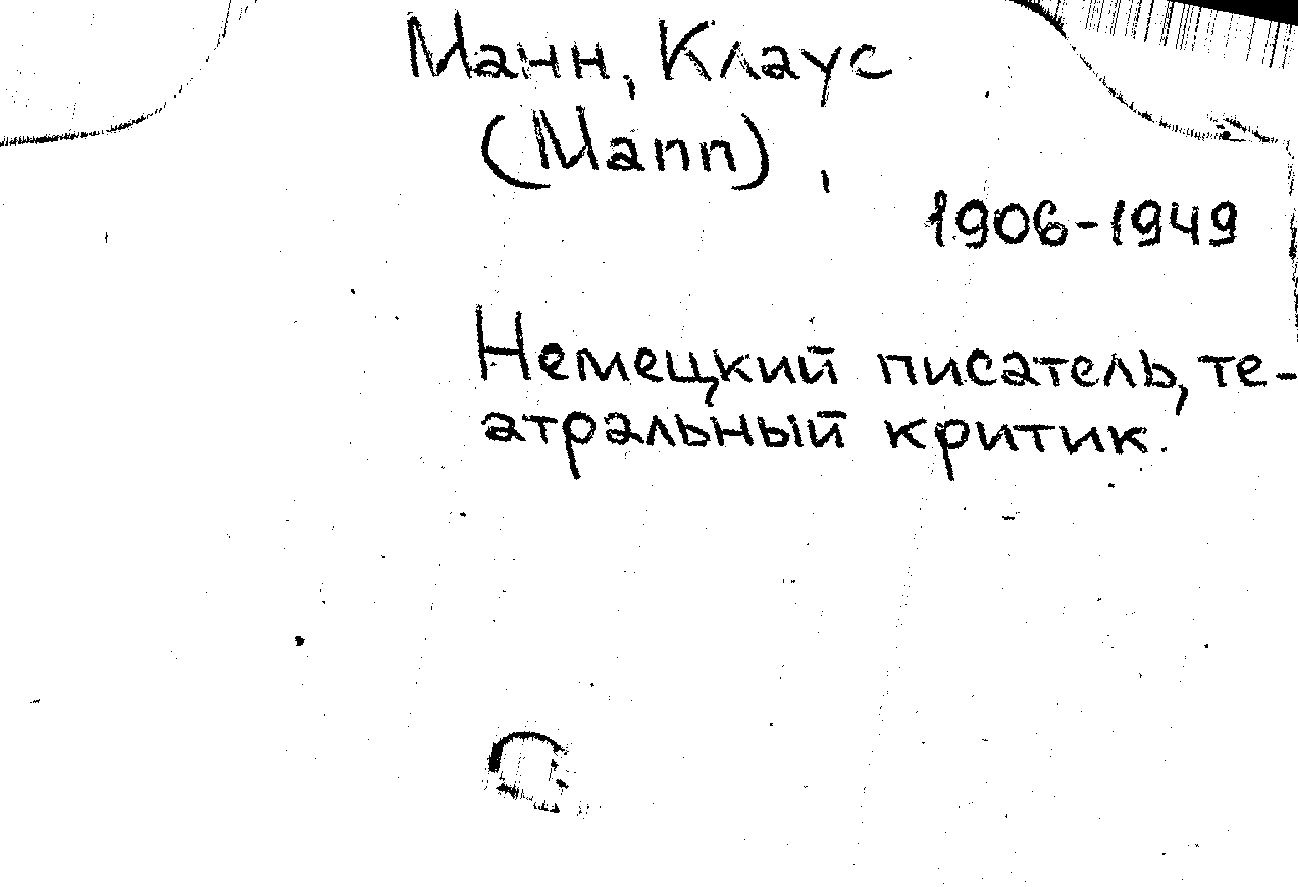 Манн, Клаус
(Mann),
1906-1949
Немецкий писатель, те-
атральный критик.